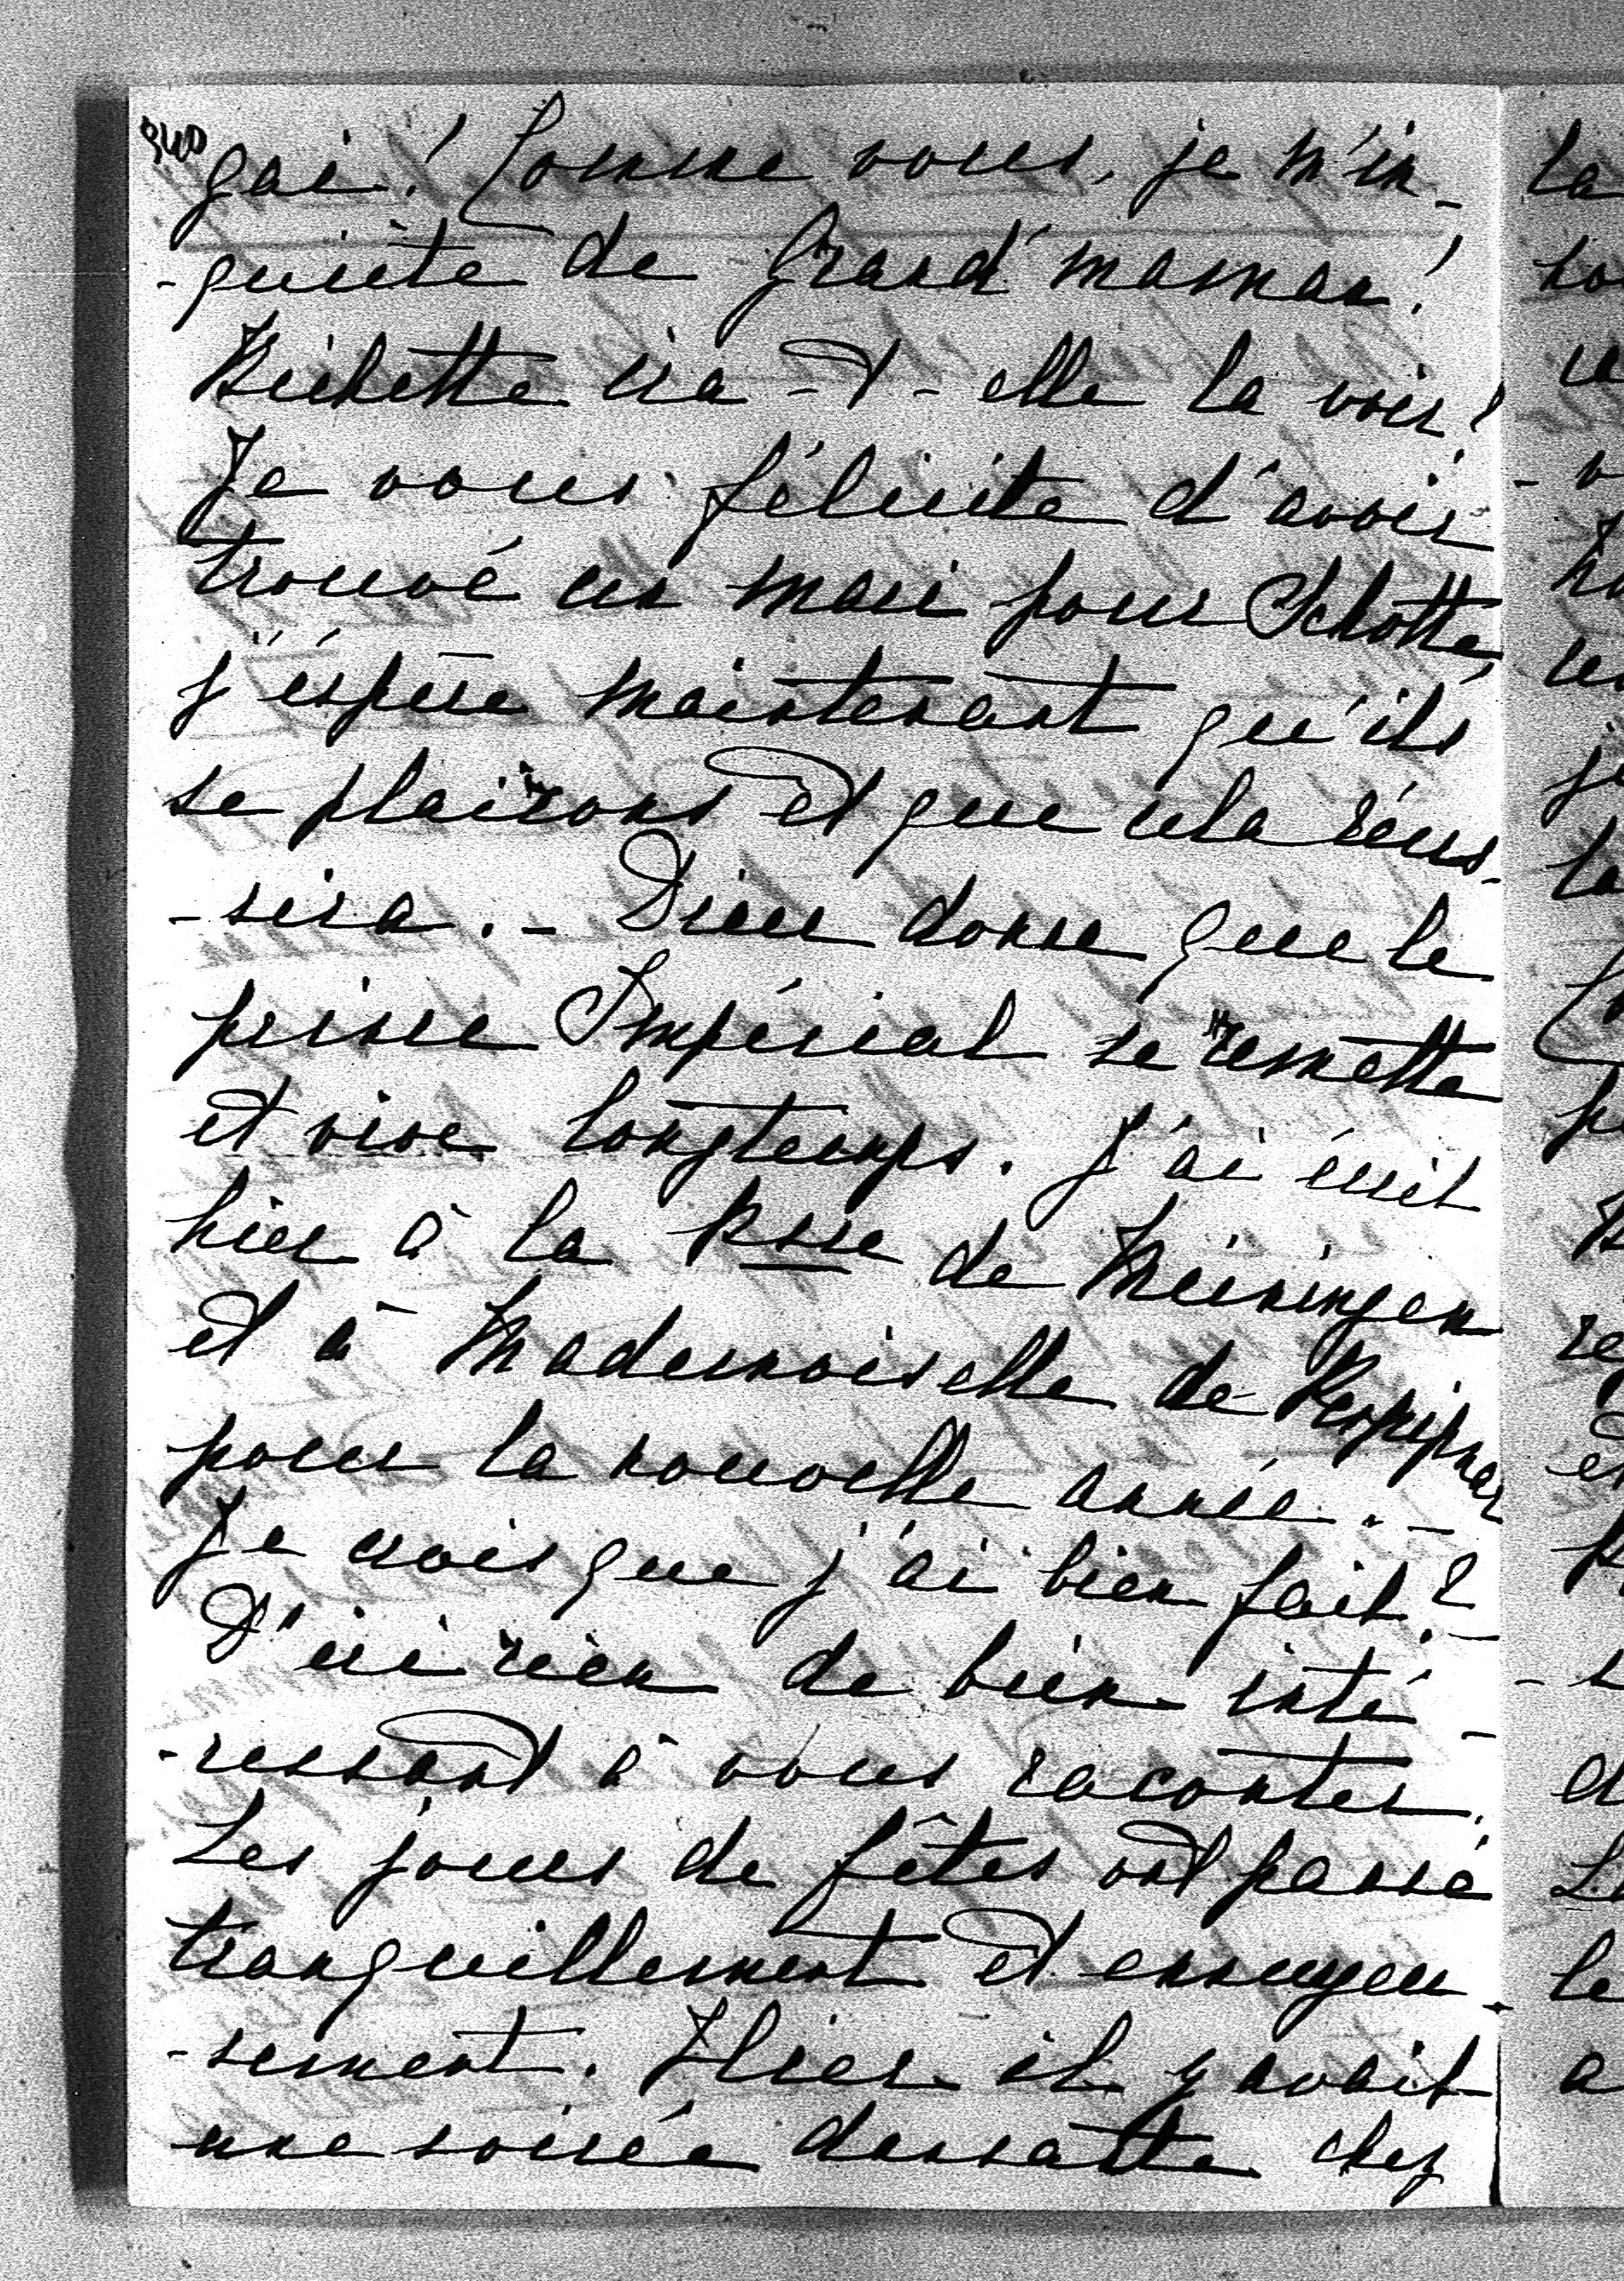 340
gai! Comme vous, je m'in-
-quiète de Grand'maman!
Bichette ira-t-elle la voir?
Je vous félicite d'avoir
trouvé un mari pour Schotte,
j'éspère maintenant qu'ils
se plairons et que cela réus-
-sira.- Dieu donne que le
prince Impérial se remette
et vive longtemps. J'ai écrit
hier à la Psse de Meiningen
et à Mademoiselle de
pour la nouvelle année.-
Je crois que j'ai bien fait?-
D'ici rien de bien inté-
-ressant à vous raconter.
Les jours de fêtes ont passé
tranquillement et ennuyeu-
-sement. Hier il y avait
une soirée dansante chez